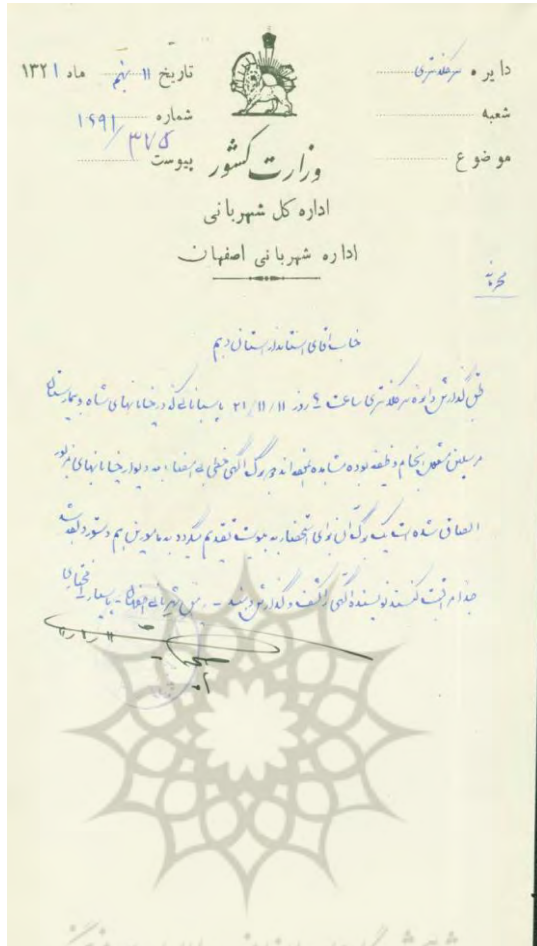 دایره سرکلانتری
شعبه
موضوع
تاریخ ۱۱ بهمن ماه ۱۳۲۱
شماره ۱۶۹۱/۳۷۵
پیوست
وزارت کشور
اداره کل شهربانی
اداره شهربانی اصفهان
محرمانه
جناب آقای استاندار استان دهم
طبق گزارش دایره سرکلانتری ساعت ۴ روز ۲۱/۱۱/۱۱ پاسبانانی که در خیابانهای شاه و بیمارستان
مرسلین مشغول انجام وظیفه بوده مشاهده نموده‌اند برگ آگهی خطی بی امضاء به دیوار خیابانهای مزبور
الصاق شده است یک برگ آن برای استحضار به پیوست تقدیم میگردد به مامورین هم دستور داده شد
جدا مراقبت کنند نویسنده آگهی را کشف و گزارش دهند - رئیس شهربانی اصفهان - پاسیار ۲ مختاری
۱۱/۱۱